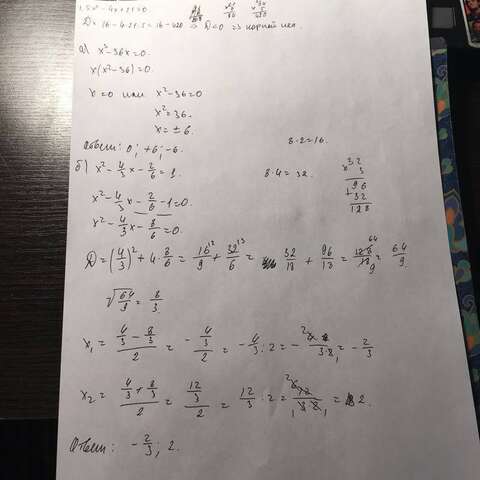 5x² - 4x + 21 = 0.
D = 16 - 4·21·5 = 16 - 420 => D < 0 => корней нет.
а) x² - 36x = 0.
x(x² - 36) = 0.
x = 0 или x² - 36 = 0
x² = 36.
x = ± 6.
Ответ: 0; +6; -6.
8·2 = 16.
б) x² - 4/3 x - 2/6 = 1.
8·4 = 32.
x32
3
96
+32
128
x² - 4/3 x - 2/6 - 1 = 0.
x² - 4/3 x - 8/6 = 0.
D = (4/3)² + 4·8/6 = 16/9 + 32/6 = 32/18 + 96/18 = 128/18 = 64/9
√64/9 = 8/3.
x₁ = (4/3 - 8/3)/2 = -(4/3)/2 = -4/3 : 2 = -4/3·2 = -2/3
x₂ = (4/3 + 8/3)/2 = (12/3)/2 = 12/3 : 2 = 12/3·2 = 2.
Ответ: -2/3; 2.